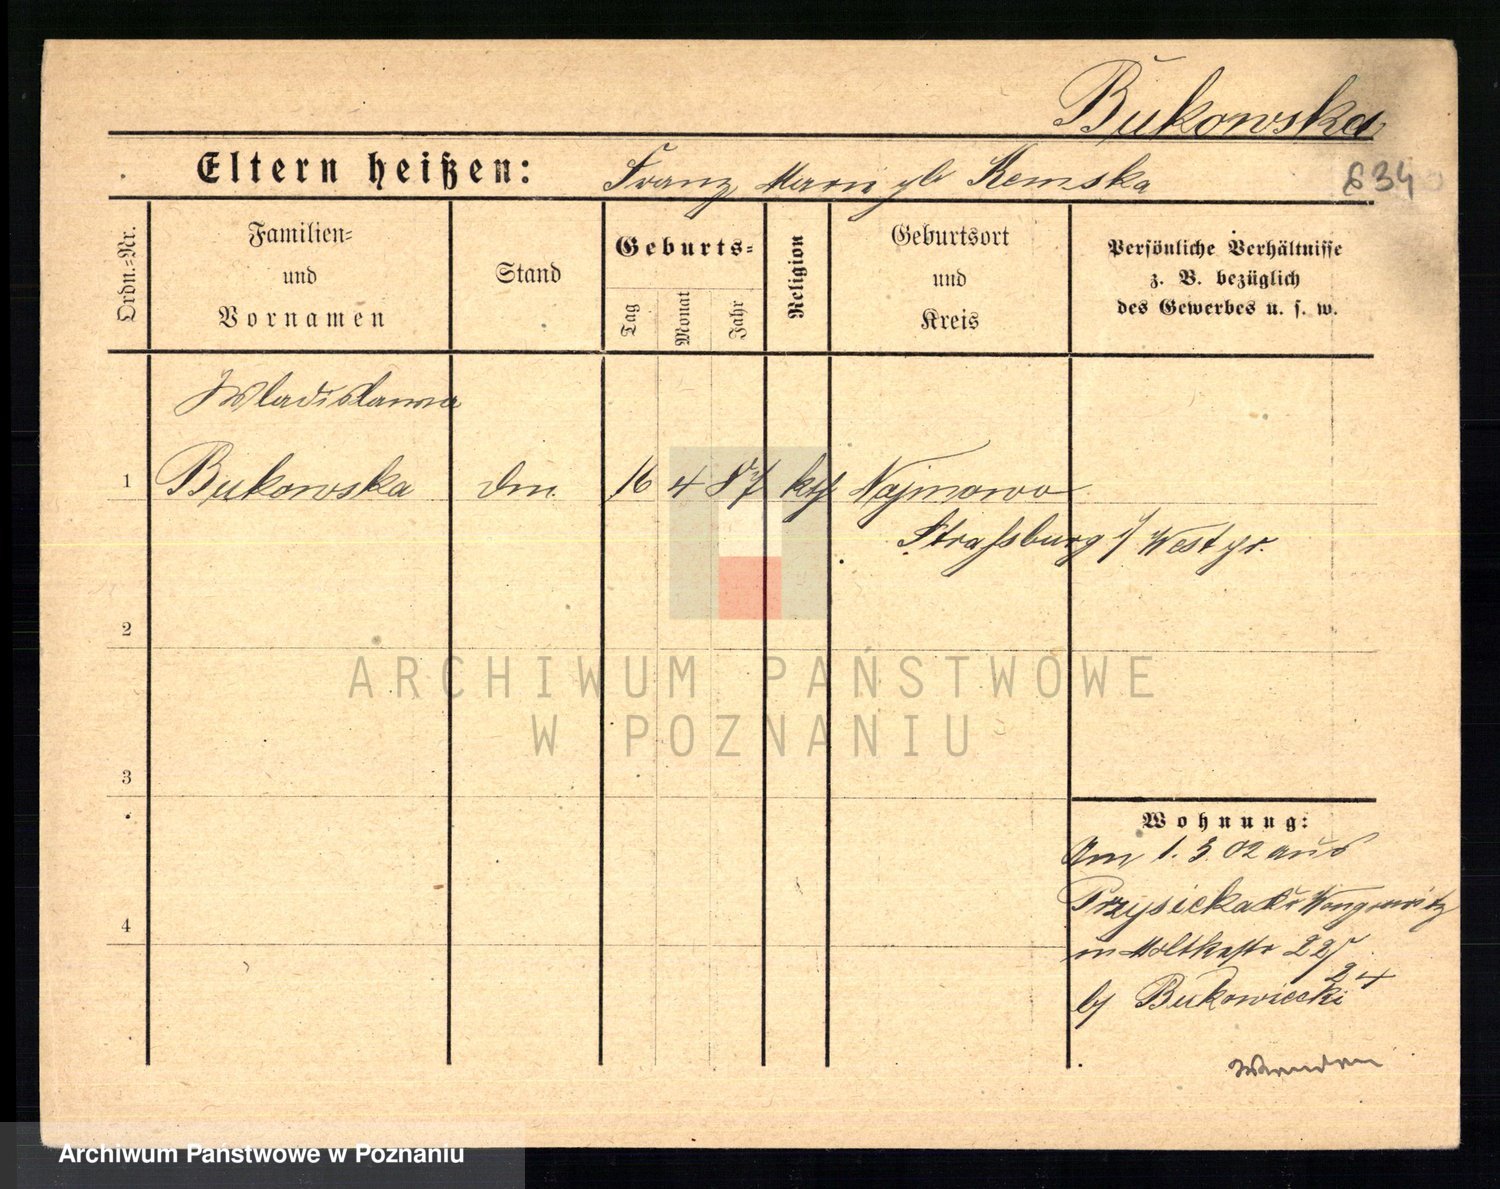 Bukowska
Eltern heißen: Franz Marie gb Kemska
834
Ordn.-Nr.
Familien-
und
Vornamen
Stand
Geburts-
Tag
Monat
Jahr
Religion
Geburtsort
und
Kreis
Persönliche Verhältnisse
z. B. bezüglich
des Gewerbes u. s. w.
Wladislawa
1 Bukowska 16 4 87 kth Najmowo
Strassburg i/ Westpr.
2
3
4
Wohnung:
Am 1. 5. 02 aus
Przysieka Kr Wongrowitz
in Moltkestr 22
24
by Bukowiecki
Wenden
ARCHIWUM PAŃSTWOWE
W POZNANIU
Archiwum Państwowe w Poznaniu